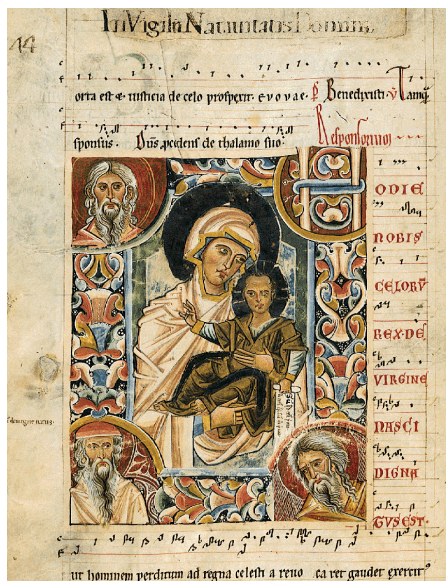 In Vigilia Natiuitatis Domini
44
orta est & iusticia de celo prosperit. e v o v a e. Benedixisti. Tamq
sponsus. Dns pcedens de thalamo suo:
Responsoriuo
H
ODIE
NOBIS
CELORV
REX DE
VIRGINE
NASCI
DIGNA
GVS EST.
ut hominem perditum ad regna celestia reuo ca ret gaudet exercit